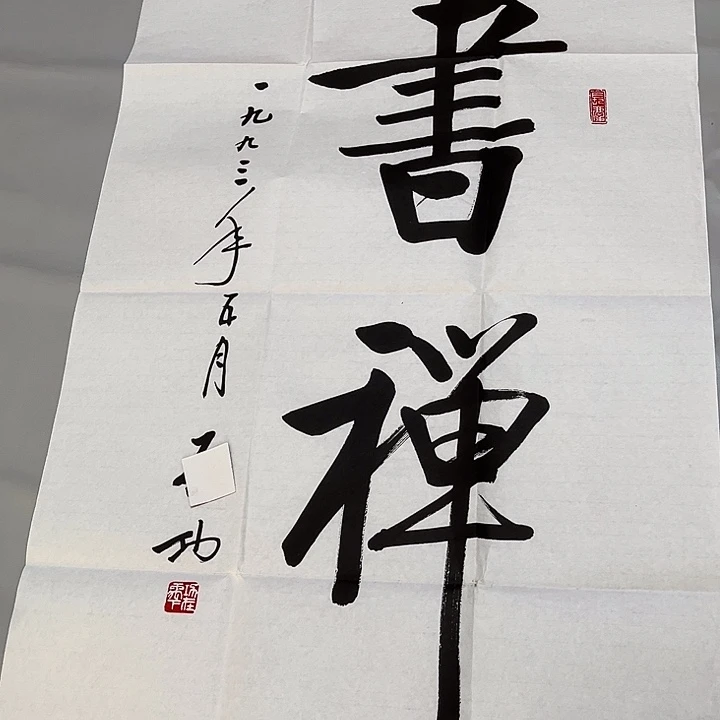 書禅
一九九三年五月
功